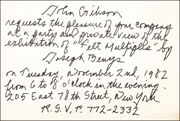 John Gibson
requests the pleasure of your company
at a party and private view of the
exhibition of "Felt Multiples" by
Joseph Beuys
on Tuesday, November 2nd, 1982
from 6 to 8 o'clock in the evening.
205 East 78th Street, New York
R.S.V.P. 772-2332